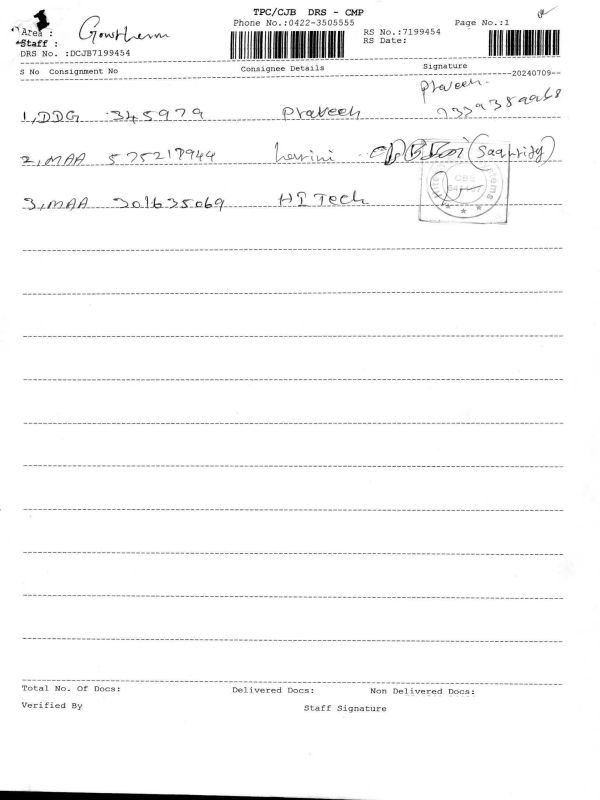 TPC/CJB DRS - CMP
Phone No.:0422-3505555 Page No.:1
Area :
Staff :
RS No.:7199454
RS Date:
DRS No. :DCJB7199454
S No Consignment No Consignee Details Signature
--20240709--
Praveen.
1, DDG 345979 Praveen
2, MAA 575217944 harini (Saqhridy)
3, MAA 301635069 HI Tech
CBE
Total No. Of Docs: Delivered Docs: Non Delivered Docs:
Verified By Staff Signature